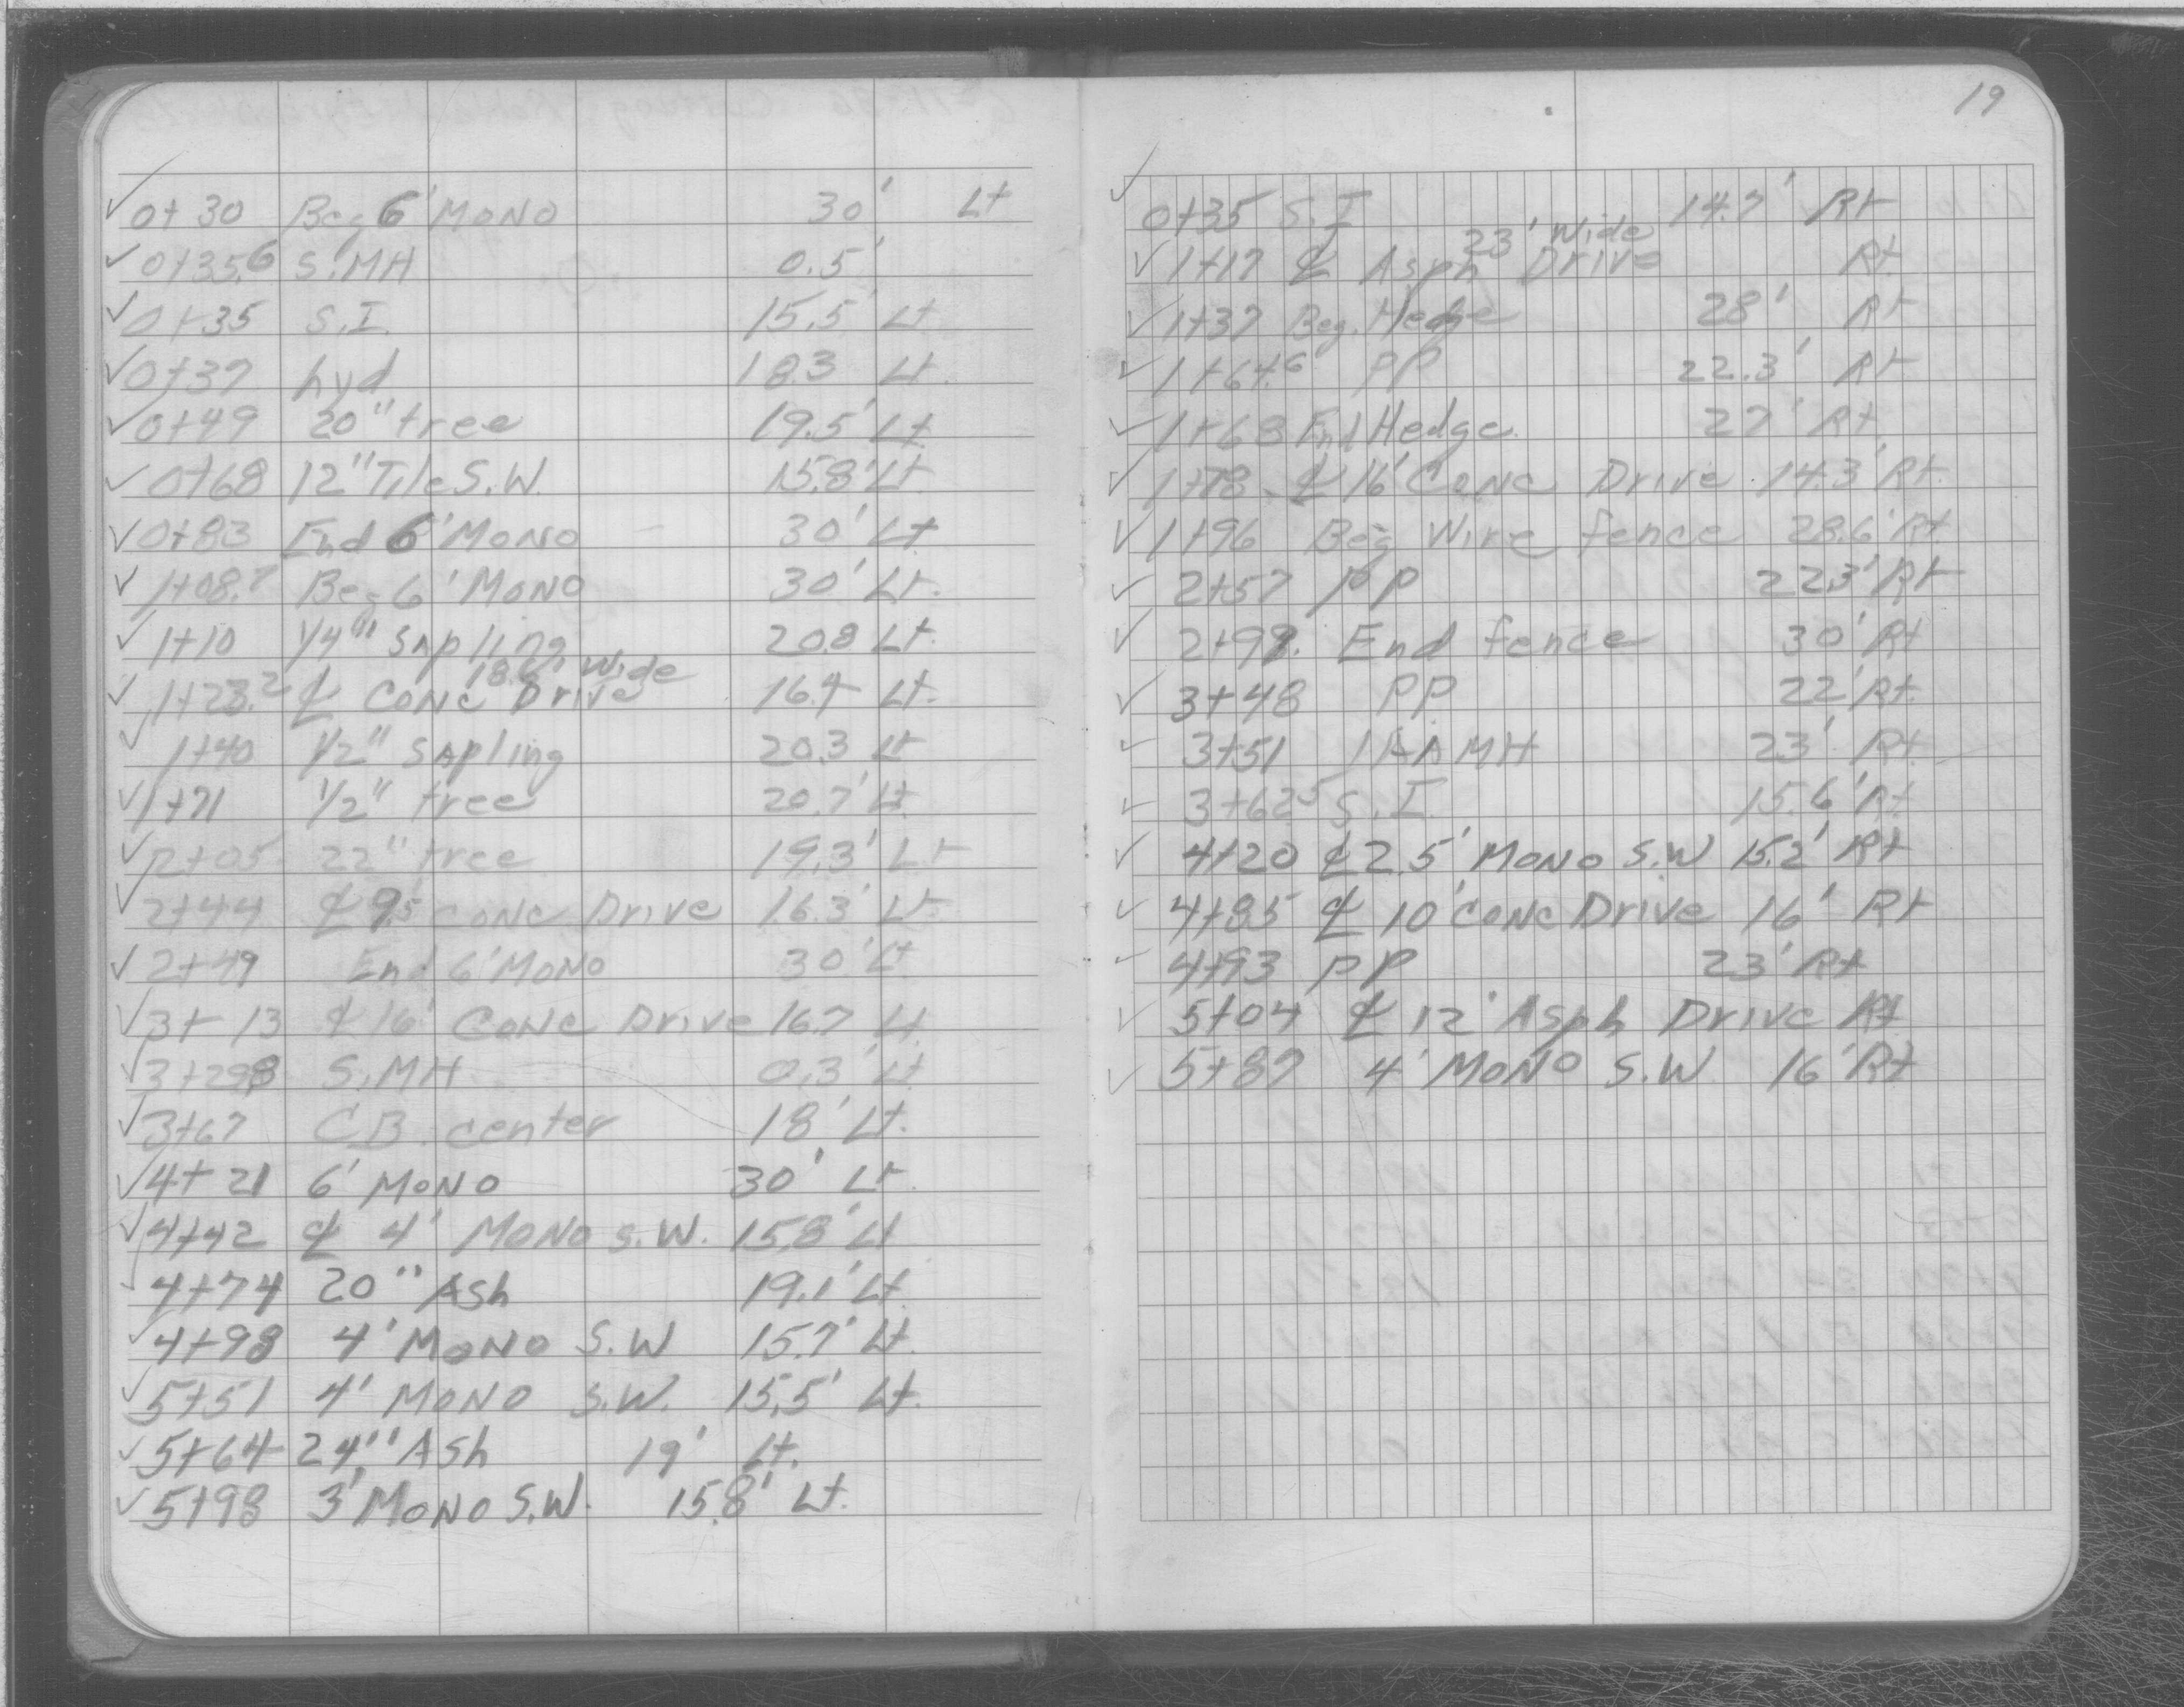 19
✓ 0+30 Beg 6' MONO 30' Lt
✓ 0+35.6 S.MH 0.5'
✓ 0+35 S.I. 15.5' Lt
✓ 0+37 hyd 18.3 Lt.
✓ 0+49 20" tree 19.5' Lt.
✓ 0+68 12" Tile S.W. 15.8' Lt
✓ 0+83 End 6' MONO 30' Lt
✓ 1+08.7 Beg 6' MONO 30' Lt.
✓ 1+10 1/4" SAPling 20.8 Lt.
✓ 1+23.2 ℄ CONC Drive 18.6' Wide 16.4 Lt.
✓ 1+40 1/2" SAPling 20.3 Lt
✓ 1+71 1/2" tree 20.7' Lt.
✓ 2+05 22" tree 19.3' Lt
✓ 2+44 ℄ 9.5' CONC Drive 16.3' Lt.
✓ 2+49 End 6' MONO 30' Lt
✓ 3+13 ℄ 16' CONC Drive 16.7 Lt
✓ 3+29.8 S.MH 0.3' Lt
✓ 3+67 C.B. center 18' Lt.
✓ 4+21 6' MONO 30' Lt.
✓ 4+42 ℄ 4' MONO S.W. 15.8' Lt
✓ 4+74 20" Ash 19.1' Lt.
✓ 4+98 4' MONO S.W 15.7' Lt.
✓ 5+51 4' MONO S.W. 15.5' Lt.
✓ 5+64 24" Ash 19' Lt.
✓ 5+98 3' MONO S.W. 15.8' Lt.
✓ 0+35 S.I 14.7' Rt
✓ 1+17 ℄ Asph Drive 23' Wide Rt
✓ 1+37 Beg. Hedge 28' Rt
✓ 1+64.6 PP 22.3' Rt
✓ 1+68 End Hedge 27' Rt
✓ 1+78 ℄ 16' CONC Drive 14.3' Rt.
✓ 1+96 Beg Wire fence 28.6' Rt
✓ 2+57 PP 22.3' Rt
✓ 2+98. End fence 30' Rt
✓ 3+48 PP 22' Rt.
✓ 3+51 MH 23' Rt
✓ 3+62.5 S.I. 15.6' Rt
✓ 4+20 ℄ 2.5' MONO S.W 15.2' Rt
✓ 4+85 ℄ 10' CONC Drive 16' Rt
✓ 4+93 PP 23' Rt
✓ 5+04 ℄ 12' Asph Drive Rt
✓ 5+87 4' MONO S.W 16' Rt